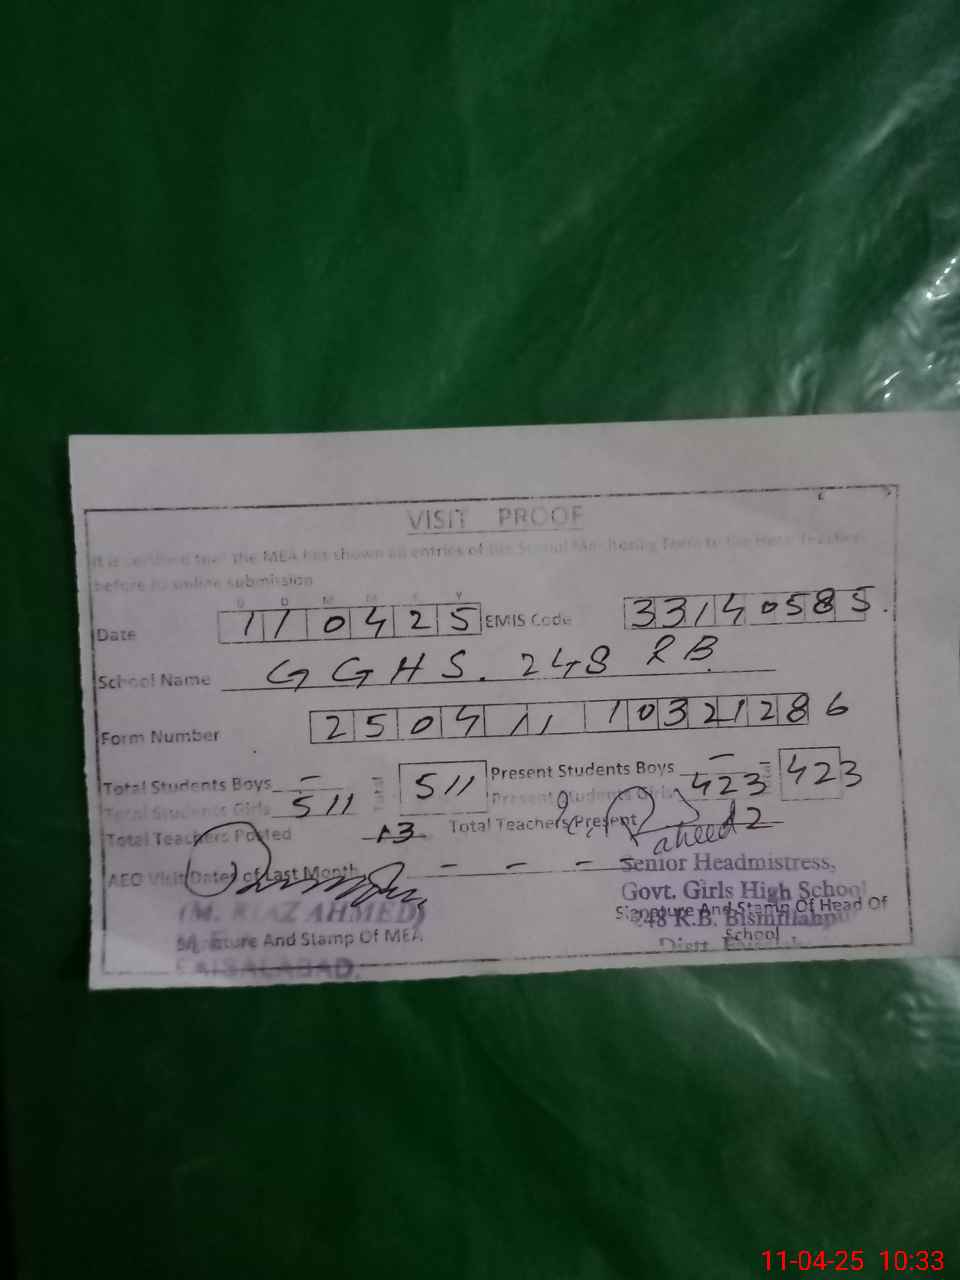 VISIT PROOF
It is certified that The MEA has shown all entries of the School Monitoring Form to the Head Teacher
before its online submission
D D M M Y Y
Date 110425 EMIS Code 33140585.
School Name GGHS. 248 RB
Form Number 250411 10321286
Total Students Boys - Total 511 Present Students Boys - Total 423
Total Students Girls 511 Present Students Girls 423
Total Teachers Posted 13 Total Teachers Present 12
AEO Visit Date of Last Month - - -
Senior Headmistress,
Govt. Girls High School
248 R.B. Bismillahpur
Distt.
Signature And Stamp Of Head Of
School
(M. RIAZ AHMED)
Signature And Stamp Of MEA
FAISALABAD.
11-04-25 10:33